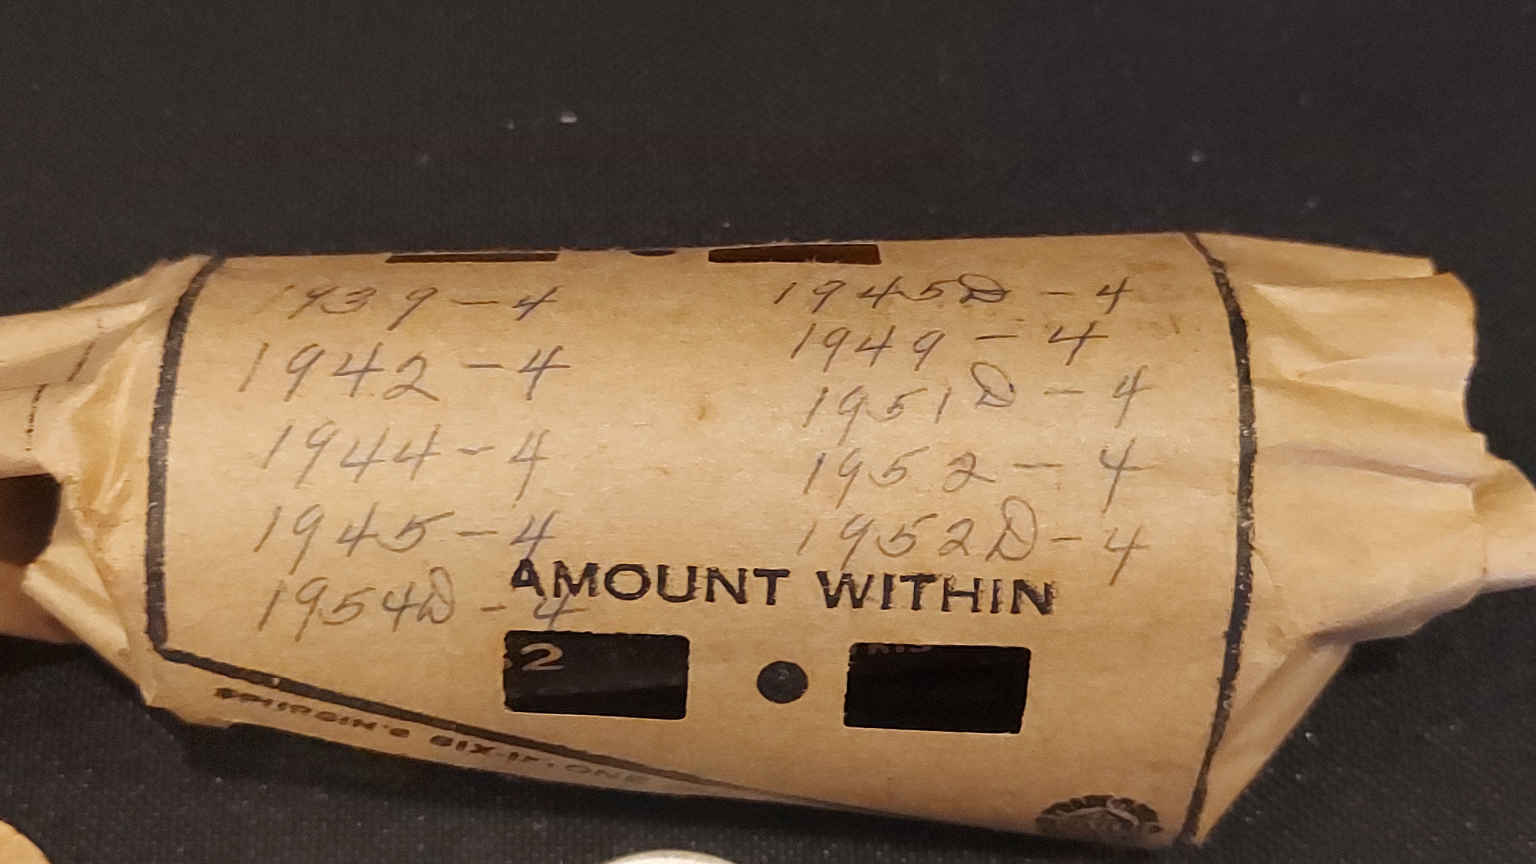 1939 - 4
1942 - 4
1944 - 4
1945 - 4
1954D - 4
1945D - 4
1949 - 4
1951D - 4
1952 - 4
1952D - 4
AMOUNT WITHIN
2